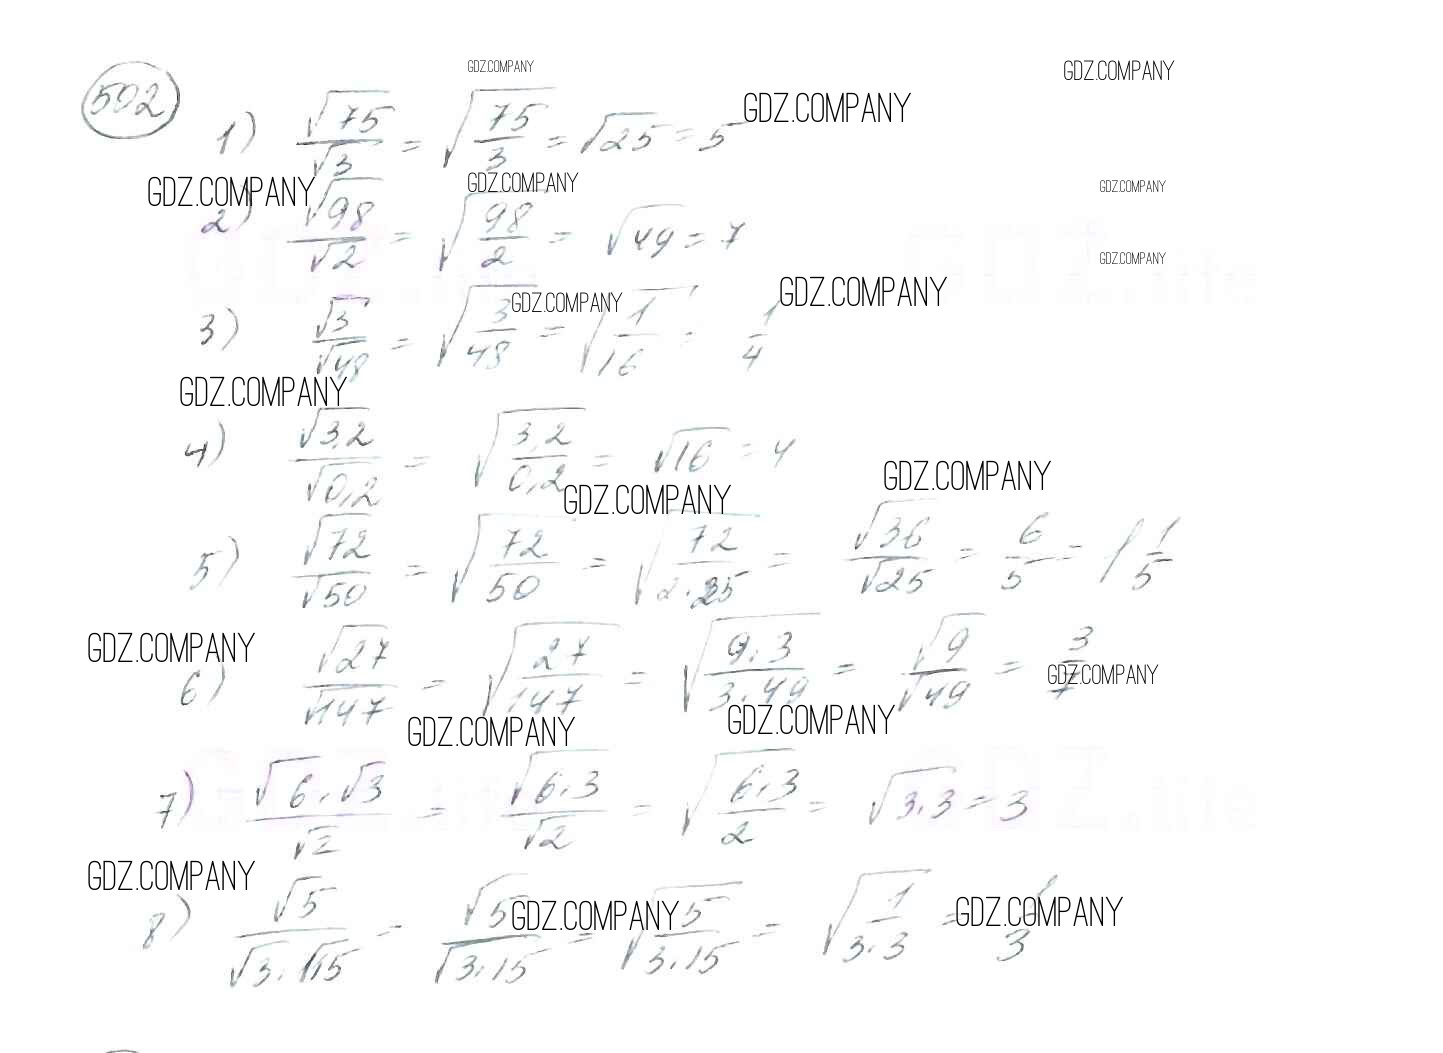 GDZ.COMPANY GDZ.COMPANY
502 GDZ.COMPANY
1) √75/√3 = √(75/3) = √25 = 5
GDZ.COMPANY GDZ.COMPANY GDZ.COMPANY
2) √98/√2 = √(98/2) = √49 = 7
GDZ.COMPANY
GDZ.life GDZ.life
GDZ.COMPANY GDZ.COMPANY
3) √3/√48 = √(3/48) = √(1/16) = 1/4
GDZ.COMPANY
4) √3,2/√0,2 = √(3,2/0,2) = √16 = 4
GDZ.COMPANY
GDZ.COMPANY
5) √72/√50 = √(72/50) = √(72/(2·25)) = √36/√25 = 6/5 = 1 1/5
GDZ.COMPANY
6) √27/√147 = √(27/147) = √((9·3)/(3·49)) = √9/√49 = 3/7
GDZ.COMPANY
GDZ.COMPANY GDZ.COMPANY
7) (√6·√3)/√2 = √(6·3)/√2 = √((6·3)/2) = √(3·3) = 3
GDZ.life GDZ.life
GDZ.COMPANY
8) √5/(√3·√15) = √5/√(3·15) = √(5/(3·15)) = √(1/(3·3)) = 1/3
GDZ.COMPANY GDZ.COMPANY